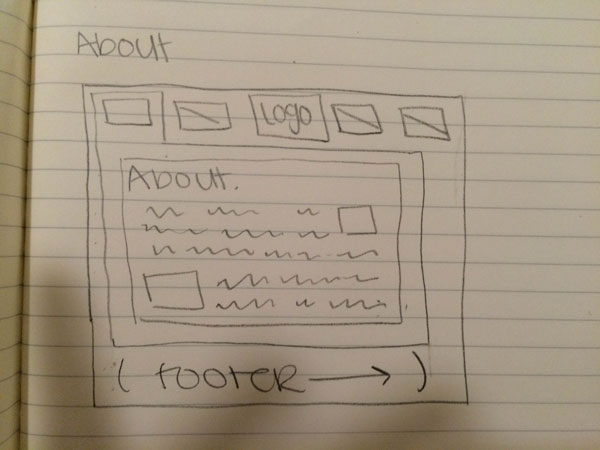 About
Logo
About.
( FOOTER → )